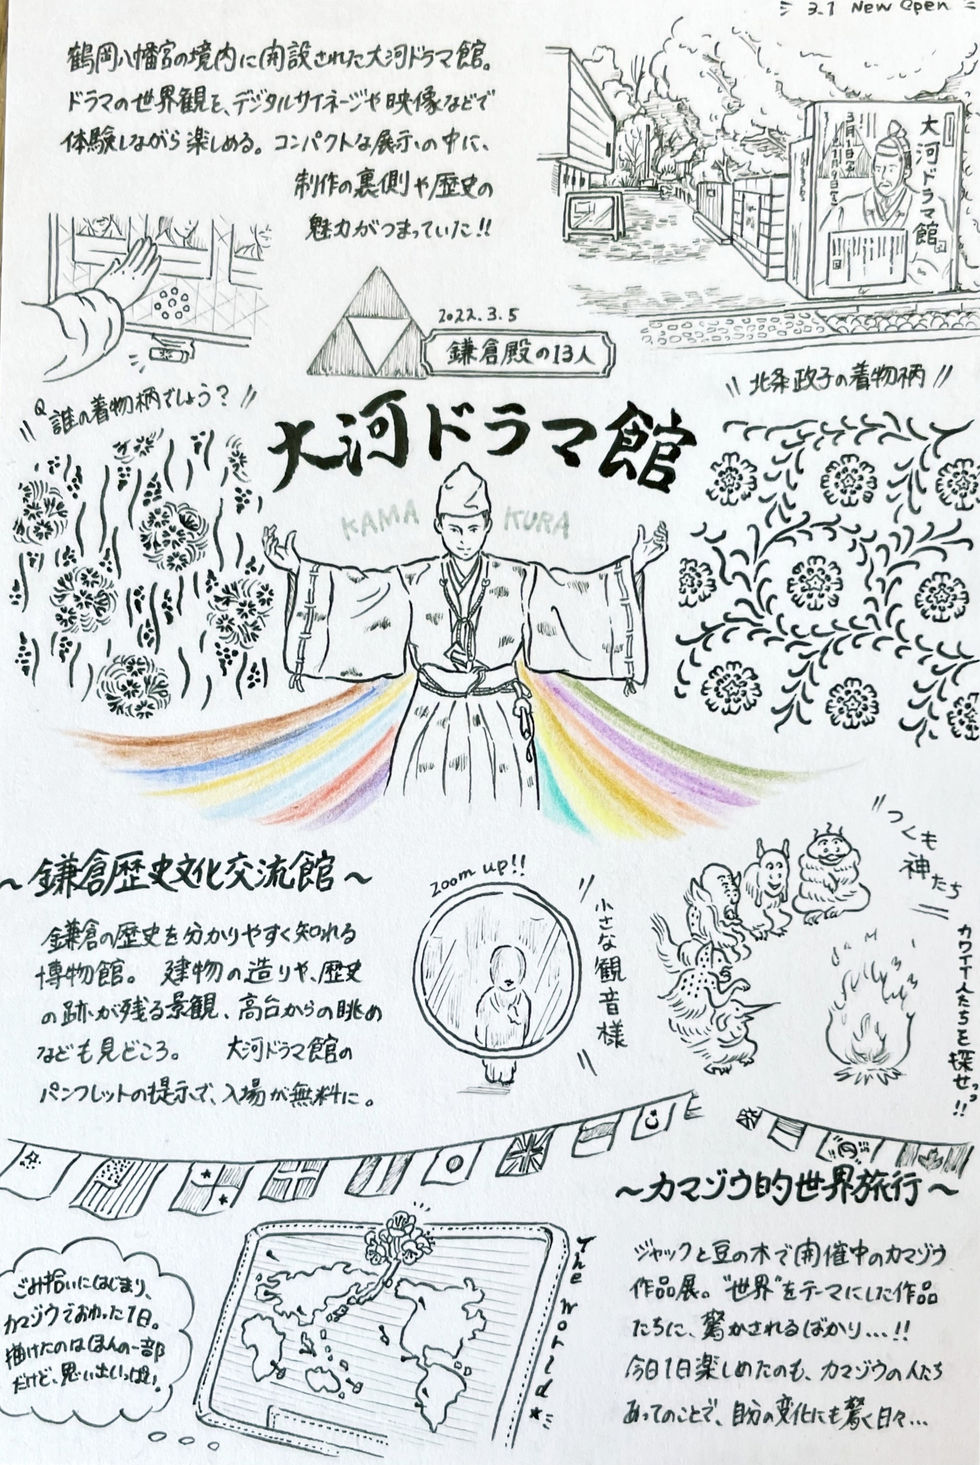 3.1 New Open
鶴岡八幡宮の境内に開設された大河ドラマ館。
ドラマの世界観を、デジタルサイネージや映像などで
体験しながら楽しめる。コンパクトな展示の中に、
制作の裏側や歴史の
魅力がつまっていた!!
大河ドラマ館
2022.3.5
鎌倉殿の13人
Q 誰の着物柄でしょう?
北条政子の着物柄
大河ドラマ館
KAMA KURA
～鎌倉歴史文化交流館～
鎌倉の歴史を分かりやすく知れる
博物館。建物の造りや、歴史
の跡が残る景観、高台からの眺め
なども見どころ。大河ドラマ館の
パンフレットの提示で、入場が無料に。
zoom up!!
小さな観音様
つくも
神たち
カワイイ人たちを探せっ!!
～カマゾウ的世界旅行～
ジャックと豆の木で開催中のカマゾウ
作品展。"世界"をテーマにした作品
たちに、驚かされるばかり...!!
今日1日楽しめたのも、カマゾウの人たち
あってのことで、自分の変化にも驚く日々...
The world
ごみ拾いにはじまり、
カマゾウでおわった1日。
描けたのはほんの一部
だけど、思い出いっぱい!